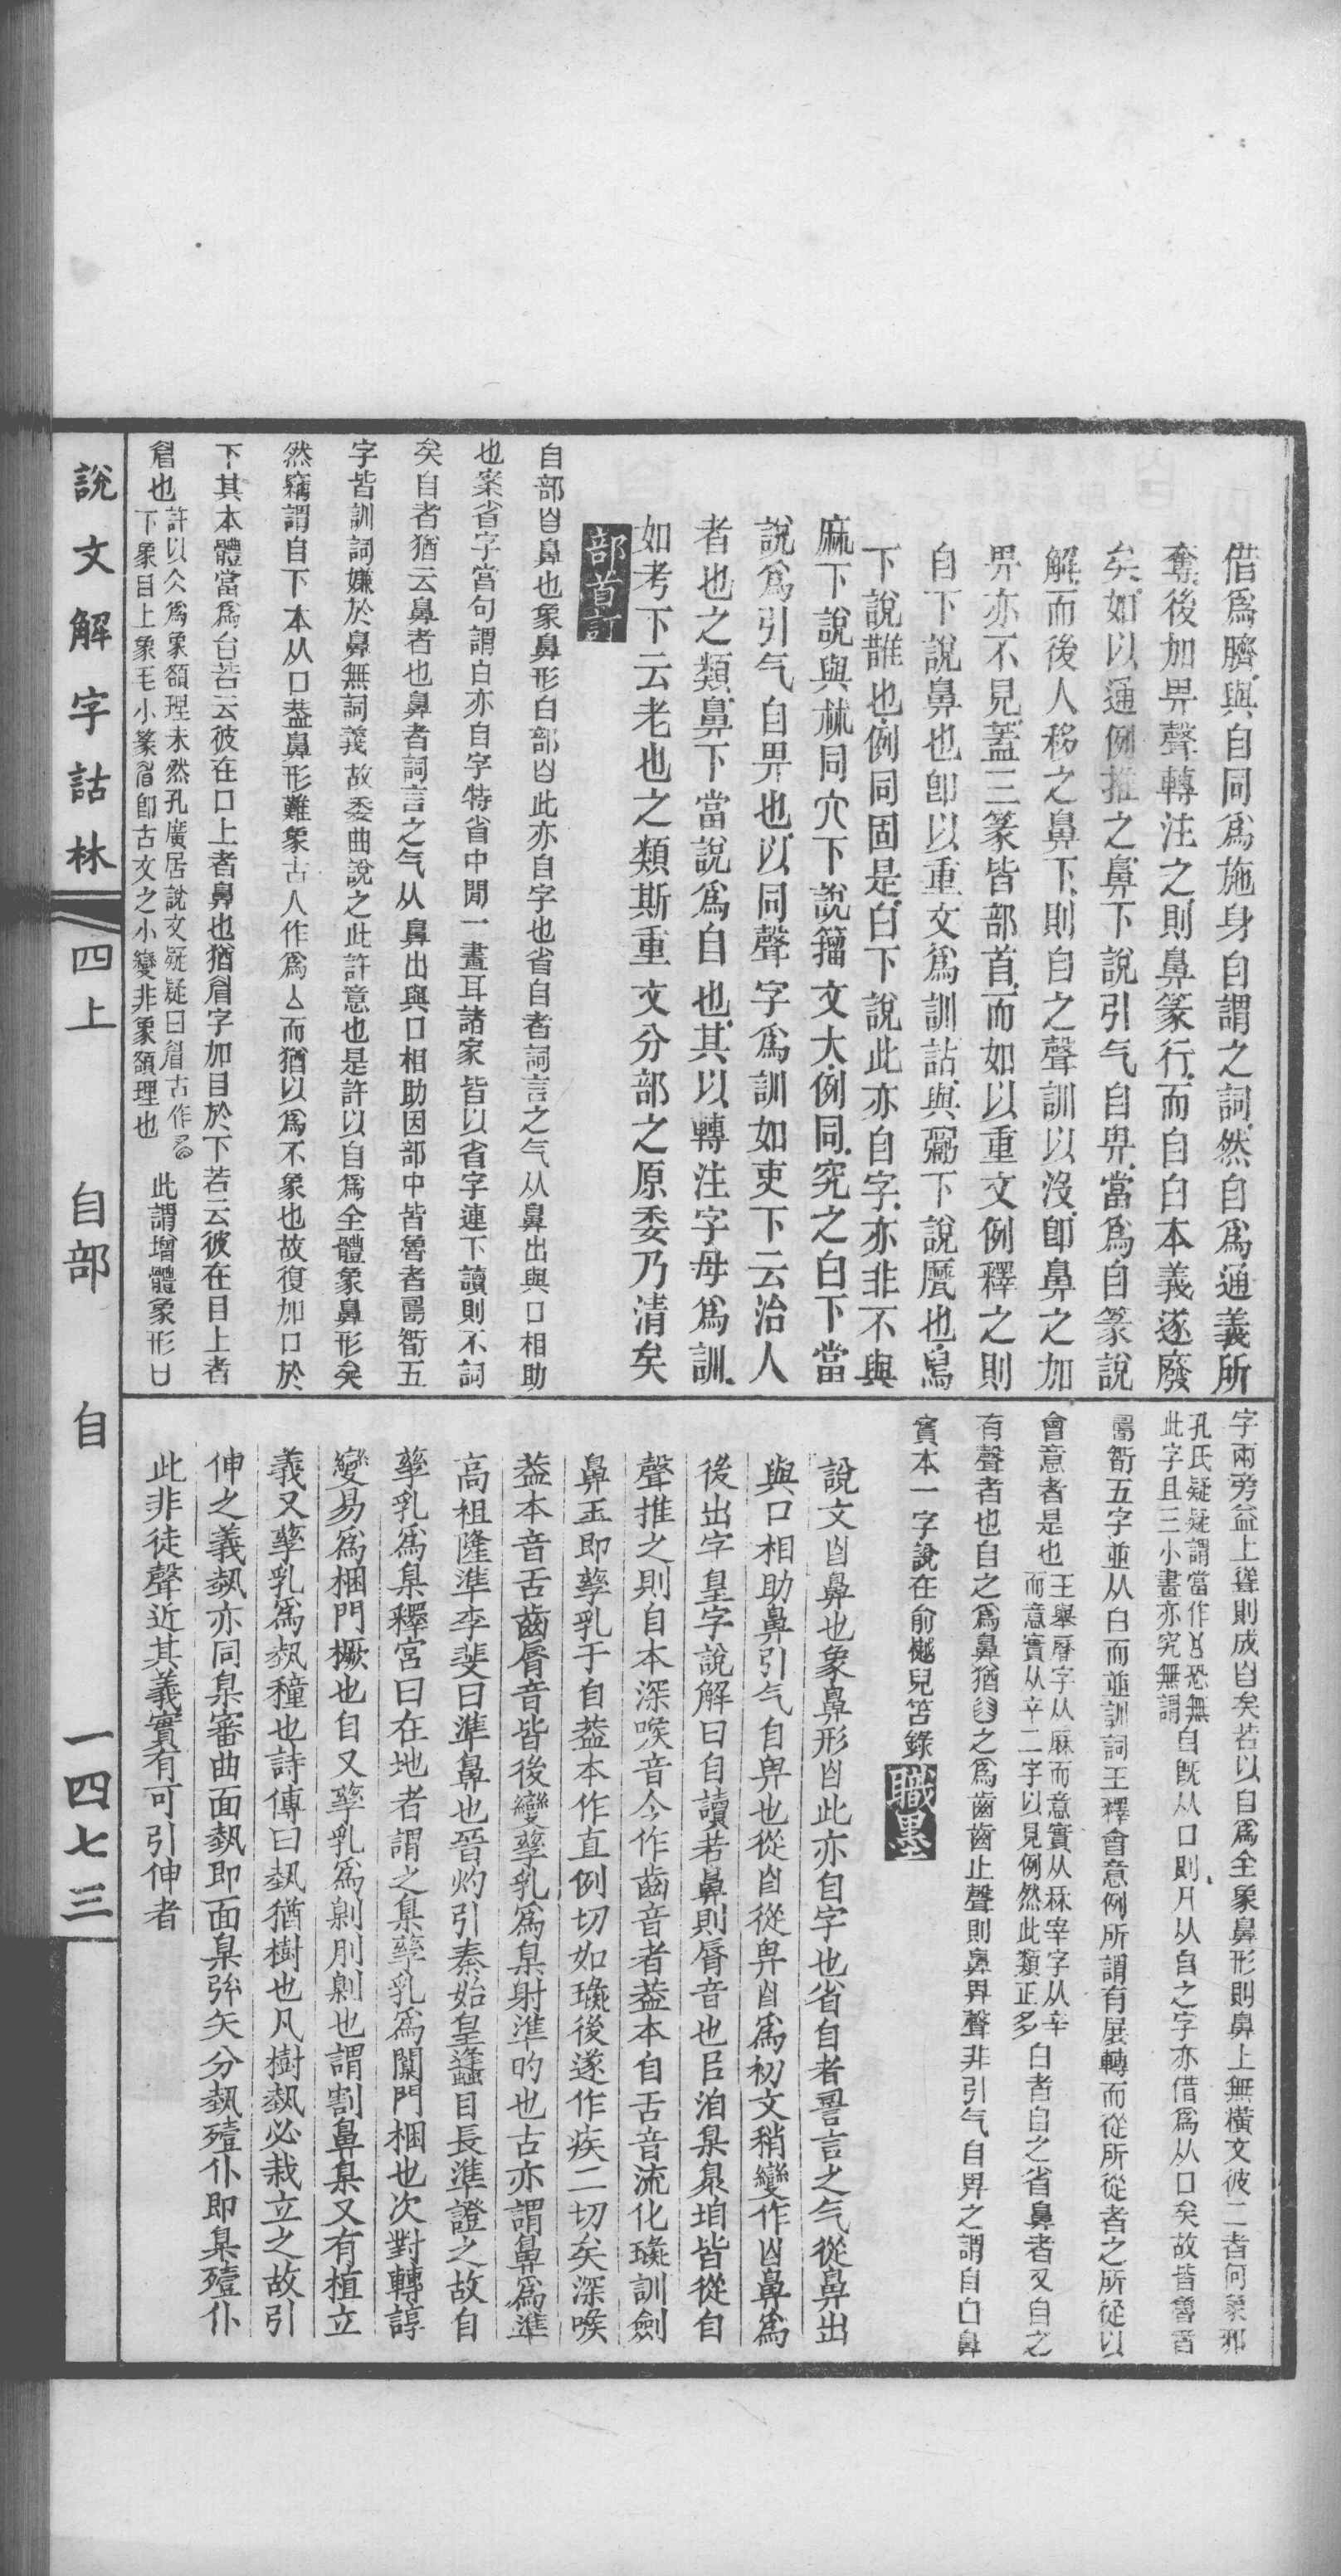 借爲臍與自同爲施身自謂之詞然自爲通義所
奪後加畀聲轉注之則鼻篆行而自白本義遂廢
矣如以通例推之鼻下說引气自畀當爲自篆說
解而後人移之鼻下則自之聲訓以沒卽鼻之加
畀亦不見蓋三篆皆部首而如以重文例釋之則
自下說鼻也卽以重文爲訓詁與鬻下說䰞也舄
下說䧿也例同固是白下說此亦自字亦非不與
麻下說與𣏟同穴下說籒文大例同究之白下當
說爲引气自畀也以同聲字爲訓如吏下云治人
者也之類鼻下當說爲自也其以轉注字母爲訓
如考下云老也之類斯重文分部之原委乃清矣
部首訂
自部𦣹鼻也象鼻形白部𦣹此亦自字也省自者詞言之气从鼻出與口相助
也案省字當句謂白亦自字特省中閒一畫耳諸家皆以省字連下讀則不詞
矣自者猶云鼻者也鼻者詞言之气从鼻出與口相助因部中皆魯者𠷎𥏼五
字皆訓詞嫌於鼻無詞義故委曲說之此許意也是許以自爲全體象鼻形矣
然竊謂自下本从口葢鼻形難象古人作爲厶而猶以爲不象也故復加口於
下其本體當爲台若云彼在口上者鼻也猶眉字加目於下若云彼在目上者
眉也許以仌爲象頟理未然孔廣居說文疑疑曰眉古作
下象目上象毛小篆眉卽古文之小變非象頟理也
此謂增體象形日
字兩旁益上聳則成𦣹矣若以自爲全象鼻形則鼻上無橫文彼二者何象邪
孔氏疑疑謂當作恐無
此字且三小畫亦究無謂
自旣从口則凡从自之字亦借爲从口矣故皆魯者
𠷎𥏼五字並从白而並訓詞王釋會意例所謂有展轉而從所從者之所從以
會意者是也王舉曆字从厤而意實从秝宰字从辛
而意實从辛二字以見例然此類正多
白者自之省鼻者又自之
有聲者也自之爲鼻猶之爲齒齒止聲則鼻畀聲非引气自畀之謂自白鼻
實本一字說在俞樾兒笘錄
職墨
說文𦣹鼻也象鼻形𦣹此亦自字也省自者䛐言之气從鼻出
與口相助鼻引气自畀也從自從畀自爲初文稍變作𦣹鼻爲
後出字皇字說解曰自讀若鼻則脣音也㠯洎臬臮垍皆從自
聲推之則自本深喉音今作齒音者葢本自舌音流化璏訓劍
鼻玉卽孳乳于自葢本作直例切如璏後遂作疾二切矣深喉
葢本音舌齒脣音皆後變孳乳爲臬射準的也古亦謂鼻爲準
高祖隆準李斐曰準鼻也晉灼引秦始皇蠭目長準證之故自
孳乳爲臬釋宮曰在地者謂之臬孳乳爲闑門梱也次對轉諄
變易爲梱門橛也自又孳乳爲劓刖劓也謂割鼻臬又有植立
義又孳乳爲埶穜也詩傳曰埶猶樹也凡樹埶必栽立之故引
伸之義埶亦同臬審曲面埶卽面臬弥矢分埶殪仆卽臬殪仆
此非徒聲近其義實有可引伸者
說文解字詁林　四上　自部　自　一四七三